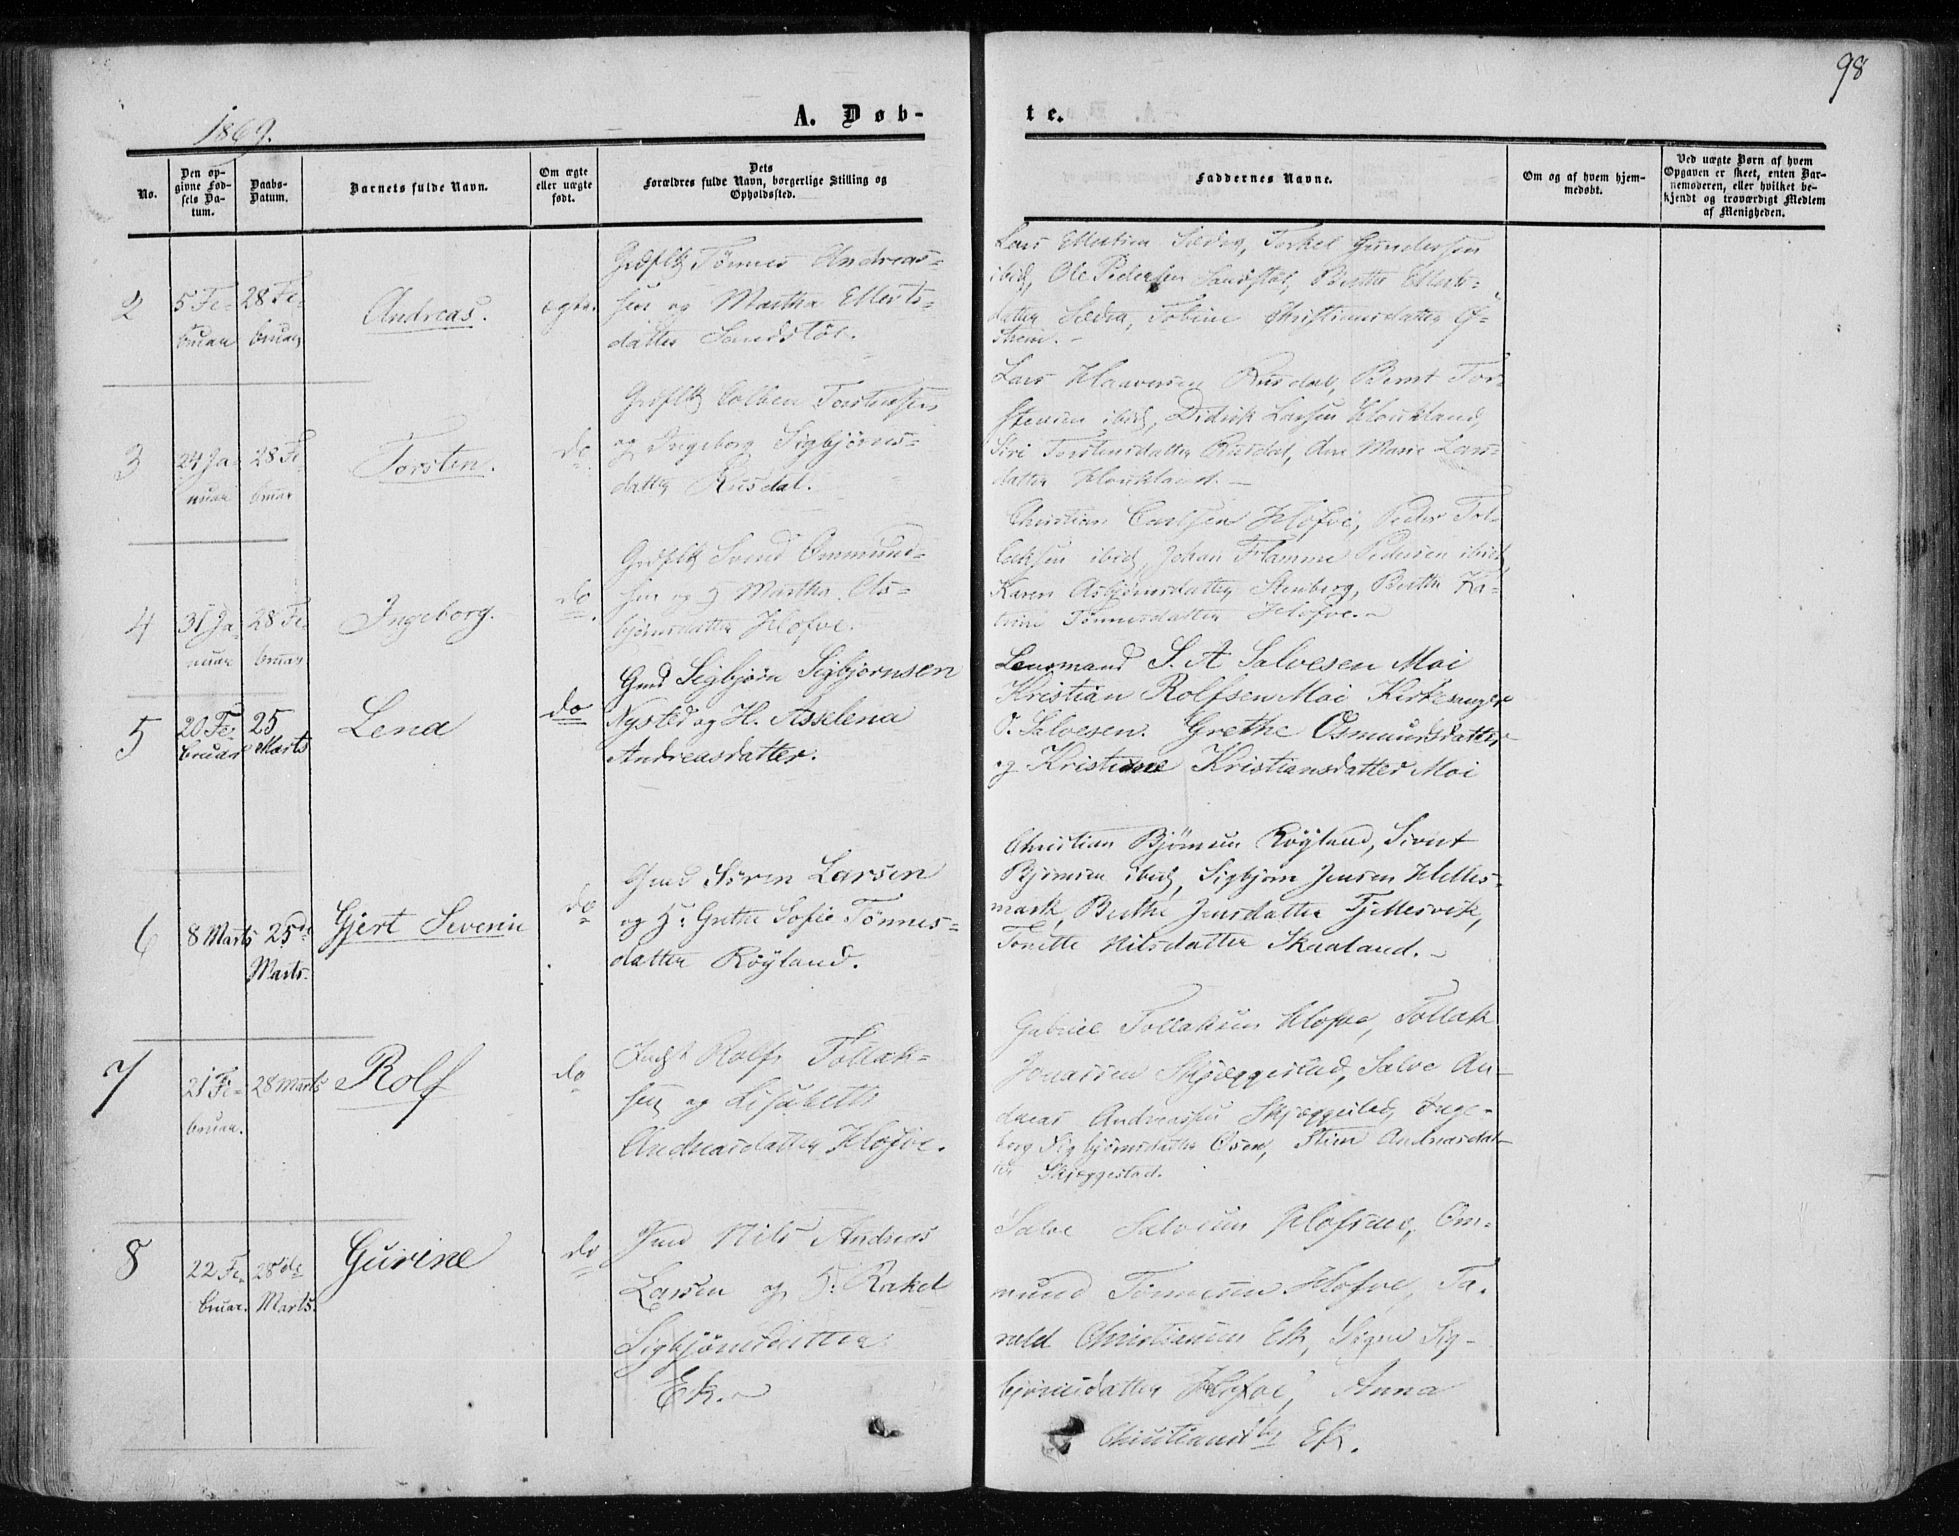 98
1869.
A. Døb-
te.
No.
Den op-
givne Fød-
sels Da-
tum.
Daabs-
Datum.
Barnets fulde Navn.
Om ægte
eller uægte
født.
Dets
Forældres fulde Navn, borgerlige Stilling og
Opholdssted.
Faddernes Navne.
Om og af hvem hjem-
medøbt.
Ved uægte Børn af hvem
Opgaven er skeet, enten Bar-
nemoderen, eller hvilket be-
kjendt og troværdigt Medlem
af Menigheden.
2
5 Fe-
bruar
28 Fe-
bruar
Andreas.
ægte.
Tønnes Andreas-
sen og Martha Ellerts-
datter Sandstøl.
Lars Torkel Gundersen
ibid, Ole Pedersen Sandstøl, Berthe
datter Sædra, Tobine Christiansdatter Ø-
streim.
3
24 Ja-
nuar
28 Fe-
bruar
Torsten.
do
Torstensen
og Ingeborg Sigbjørns-
datter Rusdal.
Lars Rusdal, Bernt Tor-
stensen ibid, Didrik Larsen Houkland,
Siri Torstensdatter Rusdal, Ane Marie Lars-
datter Houkland.
4
31 Ja-
nuar
28 Fe-
bruar.
Ingeborg.
do
Svend Ommund-
sen og H Martha As-
bjørnsdatter Hofve.
Christian Carlsen Hofve, Peder Tol-
laksen ibid, Johan Flamme Pedersen ibid,
Karen Asbjørnsdatter Stenberg, Berthe Ka-
trine Tønnesdatter Hofve.
5
20 Fe-
bruar
25
Marts
Lena
do
Gmd Sigbjørn Sigbjørnsen
Nysted og H. Asselena
Andreasdatter.
Lensmand S. A Salvesen Moi
Kristian Rolfsen Moi Kirkesanger
O. Salvesen. Grethe Osmundsdatter
og Kristine Kristiansdatter Moi
6
8 Marts
25de
Marts.
Gjert Severin
do
Gmd Søren Larsen
og H: Grethe Sofie Tønnes-
datter Røyland.
Christian Bjørnsen Røyland, Sivert
Bjørnsen ibid, Sigbjørn Jensen Helles-
mark, Berthe Jensdatter Fjellesvik,
Tonette Nilsdatter Skaaland.
7
21 Fe-
bruar.
28 Marts
Rolf
do
Indst Rolf Tollak-
sen og Lisabeth
Andreasdatter Hofve.
Gabriel Tollaksen Hofve, Tollak
Jonassen Skjæggestad, Salve An-
dreas Andreassen Skjæggestad, Inge-
borg Sigbjørnsdatter Osen, Stine Andreasdat-
ter Skjæggestad.
8
22 Fe-
bruar.
28de
Marts.
Gurine
do
Gmd Nils Andreas
Larsen og H: Rakel
Sigbjørnsdatter
Ek.
Salve Salvesen Om-
mund Tønnesen Hofve, Ta-
rald Christiansen Ek, Signe Sig-
bjørnsdatter Hofve, Anna
Christiansdtr Ek.